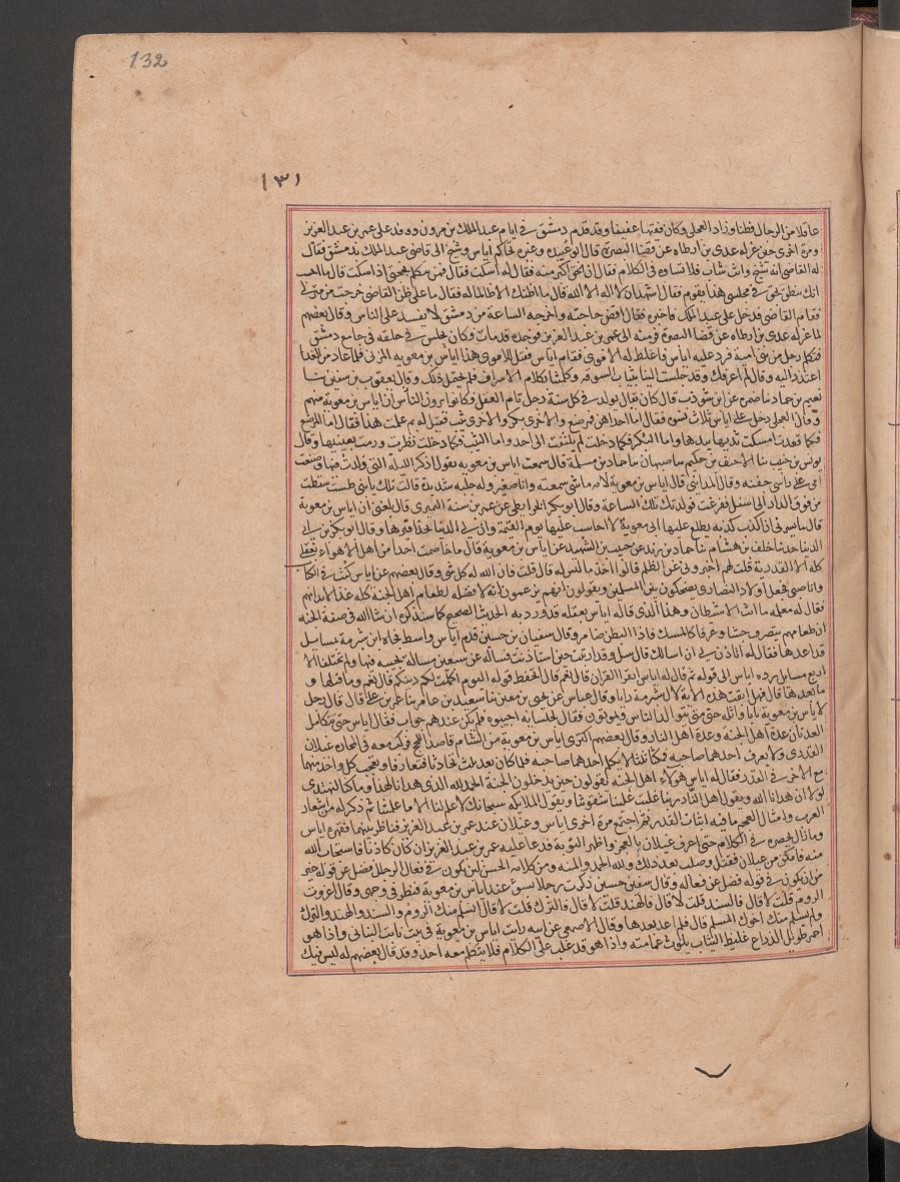 132
١٣١
عاقلا من الرجال فطنا وزاد العجلى وكان فقيها عفيفا وقد قدم دمشق في ايام عبد الملك بن مرون ووفد على عمر بن عبد العزيز
ومرة اخرى حين عزله عدى بن ارطاه عن قضا البصرة قال ابو عبيده وغيره تحاكم اياس وشيخ الى قاضى عبد الملك بدمشق فقال
له القاضى انه شيخ وانت شاب فلا تساوه في الكلام فقال ان الحق اكبر منه فقال له اسكت فقال فمن يتكلم بحجتى اذا سكت قال ما احسب
انك تنطق بحق في مجلسى هذا يقوم فقال اشهد ان لا اله الا الله قال ما اظنك الا ظالما له فقال ما على ظن القاضى خرجت من منزلى
فقام القاضى فدخل على عبد الملك فاخبره فقال اقض حاجته واخرجه الساعة من دمشق لا يفسد على الناس وقال بعضهم
لما عزله عدى بن ارطاه عن قضا البصرة فر منه الى عمر بن عبد العزيز فوجده قد مات وكان يجلس في حلقه في جامع دمشق
فتكلم رجل من بنى امية فرد عليه اياس فاغلظ له الاموى فقام اياس فقيل للاموى هذا اياس بن معويه المزنى فلما عاد من الغد
اعتذر اليه وقال لم اعرفك وقد جلست الينا بثياب السوقه وكلمتنا بكلام الاشراف فلم نحتمل ذلك وقال يعقوب بن سفين ثنا
نعيم بن حماد ثنا ضمره عن ابن شوذب قال كان يقال يولد في كل سنة رجل تام العقل فكانوا يرون الناس ان اياس بن معوية منهم
وقال العجلى دخل على اياس ثلاث نسوه فقال اما احداهن فمرضع والاخرى بكر والاخرى ثيب فقيل له بم علمت هذا فقال اما المرضع
فكما قعدت امسكت ثديها بيدها واما البكر فكما دخلت لم تلتفت الى احد واما الثيب فكما دخلت نظرت ورمت بعينيها وقال
يونس بن حبيب بنا الاحنف بن حكيم باصبهان ثنا حماد بن سلمة قال سمعت اياس بن معويه يقول اذكر الليله التى ولدت فيها وضعت
امى على راسى جفنه وقال المداينى قال اياس بن معوية لامه ما شى سمعته وانا صغير وله جلبه شديده قالت تلك يا بنى طست سقطت
من فوق الدار الى اسفل ففزعت فولدتك تلك الساعة وقال ابو بكر الخرايطى عن عمر بن شبة النميرى قال بلغنى ان اياس بن معوية
قال ما يسرنى ان اكذب كذبه يطلع عليها ابى معوية لا احاسب عليها يوم القيمه وان لى الدنيا بحذافيرها وقال ابو بكر بن ابى
الدنيا حدثنا خلف بن هشام ثنا حماد بن زيد عن حبيب بن الشهيد عن اياس بن معوية قال ما خاصمت احدا من اهل الاهواء بعقلى
كله الا القدرية قلت لهم اخبرونى عن الظلم قالوا اخذ ما ليس له قال قلت فان الله له كل شى وقال بعضهم عن اياس كنت في الكتاب
وانا صبى فجعل اولاد النصارى يضحكون من المسلمين ويقولون انهم يزعمون انه لا فضله لطعام اهل الجنة
فقال له معلمه ما انت الا شيطان وهذا الذى قاله اياس بعقله قد ورد به الحديث الصحيح كما سنذكره ان شا الله في صفة الجنه
ان طعامهم ينصرف جشا وعرقا كالمسك فاذا البطن ضامر وقال سفيان بن حسين قدم اياس واسط فجاه ابن شبرمة بمسايل
قد اعدها فقال له اتاذن لى ان اسالك قال سل وقد ارتبت حين استاذنت فساله عن سبعين مساله يجيبه فيها ولم يختلفا الا
اربع مسايل رده اياس الى قوله ثم قال له اياس اتقرا القران قال نعم قال اتحفظ قوله اليوم اكملت لكم دينكم قال نعم وما قبلها و
ما بعدها قال فهل ابقت هذه الاية لال شبرمة رايا وقال عباس عن يحيى بن معين ثنا سعيد بن عامر بنا عمر بن على قال قال رجل
لاياس بن معوية يا ابا واثله حتى متى يتوالد الناس ويموتون فقال لجلسايه اجيبوه فلم يكن عندهم جواب فقال اياس حتى تتكامل
العدتان عدة اهل الجنة وعدة اهل النار وقال بعضهم اكترى اياس بن معوية من الشام قاصدا الحج فركب معه في المحاره غيلان
القدرى ولا يعرف احدهما صاحبه فمكثا ثلاثا لا يكلم احدهما صاحبه فلما كان بعد ثلاث تحادثا فتعارفا وتعجب كل واحد منهما
مع الاخر في القدر فقال له اياس هولاء اهل الجنه يقولون حين يدخلون الجنة الحمد لله الذى هدانا لهذا وما كنا لنهتدى
لولا ان هدانا الله ويقول اهل النار ربنا غلبت علينا شقوتنا ويقول الملايكه سبحانك لا علم لنا الا ما علمتنا ثم ذكر له من اشعار
العرب وامثال العجم ما فيه اثبات القدر ثم اجتمع مرة اخرى اياس وغيلان عند عمر بن عبد العزيز فناظر بينهما فقهره اياس
وما زال يحصره في الكلام حتى اعترف غيلان بالعجز واظهر التوبة فدعا عليه عمر بن عبد العزيز ان كان كاذبا فاستجاب الله
منه فامكن من غيلان فقتل وصلب بعد ذلك ولله الحمد والمنه ومن كلامه الحسن لان يكون في فعال الرجل فضل عن قوله خير
من ان يكون في قوله فضل عن فعاله وقال سفين بن حسين ذكرت رجلا بسوء عند اياس بن معوية فنظر في وجهى وقال اغزوت
الروم قلت لا قال فالسند قلت لا قال فالهند قلت لا قال فالترك قلت لا قال افسلم منك الروم والسند والهند والترك
ولم يسلم منك اخوك المسلم قال فلم اعد بعدها وقال الاصمعى عن ابيه رايت اياس بن معوية في بيت ثابت البنانى واذا هو
احمر طويل الذراع غليظ الثياب يلوث عمامته واذا هو قد غلب على الكلام فلا يتكلم معه احد وقد قال بعضهم له ليس فيك